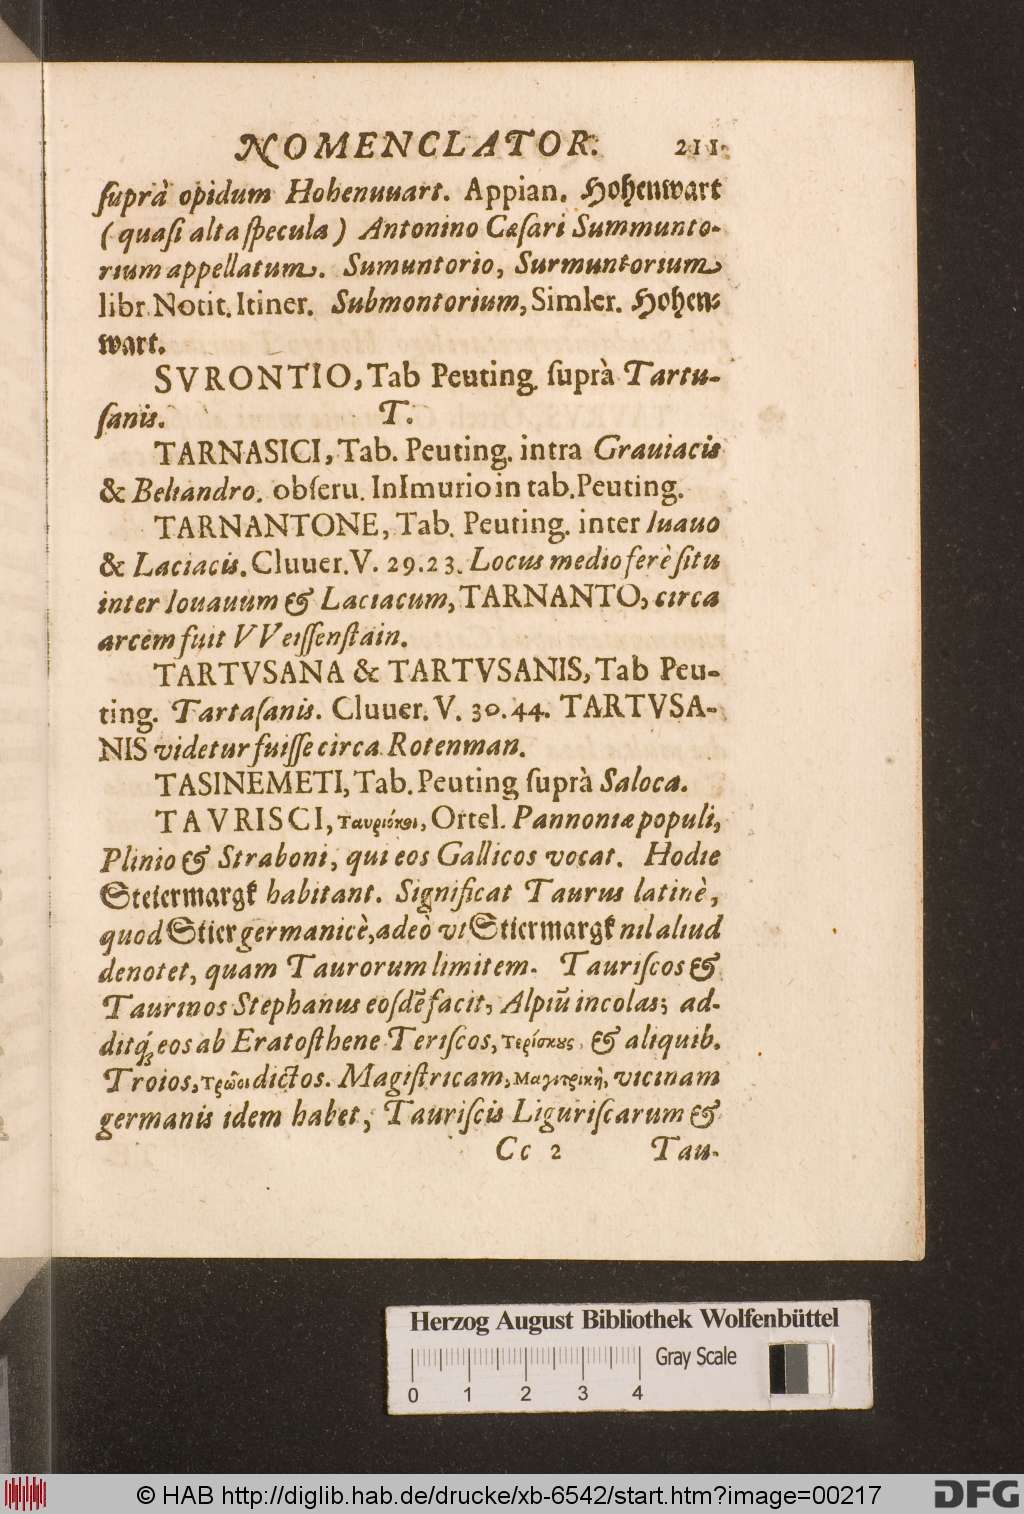 NOMENCLATOR. 211
ſuprà opidum Hohenuuart. Appian. Hohenwart
(quaſi alta ſpecula) Antonino Cæſari Summunto-
rium appellatum. Sumuntorio, Surmuntorium
libr. Notit. Itiner. Submontorium, Simler. Hohen-
wart.
SVRONTIO, Tab Peuting. ſuprà Tartu-
ſanis.
T.
TARNASICI, Tab. Peuting. intra Grauiacis
& Beliandro. obſeru. In Imurio in tab. Peuting.
TARNANTONE, Tab. Peuting. inter Iuauo
& Laciacis. Cluuer. V. 29. 23. Locus medio ferè ſitu
inter Iouauum & Laciacum, TARNANTO, circa
arcem fuit VVeiſſenſtain.
TARTVSANA & TARTVSANIS, Tab Peu-
ting. Tartaſanis. Cluuer. V. 30. 44. TARTVSA-
NIS videtur fuiſſe circa Rotenman.
TASINEMETI, Tab. Peuting ſuprà Saloca.
TAVRISCI, Ταυρίσκοι, Ortel. Pannoniæ populi,
Plinio & Straboni, qui eos Gallicos vocat. Hodie
Steiermargk habitant. Significat Taurus latinè,
quod Stier germanicè, adeò vt Stiermargk nil aliud
denotet, quam Taurorum limitem. Tauriſcos &
Taurinos Stephanus eoſdē facit, Alpiū incolas; ad-
ditq́; eos ab Eratoſthene Teriſcos, Τερίσκους, & aliquib.
Troios, Τρῶοι dictos. Magiſtricam, Μαγιστρικὴ, vicinam
germanis idem habet, Tauriſcis Liguriſcarum &
Cc 2 Tau-
Herzog August Bibliothek Wolfenbüttel
Gray Scale
0 1 2 3 4
© HAB http://diglib.hab.de/drucke/xb-6542/start.htm?image=00217
DFG